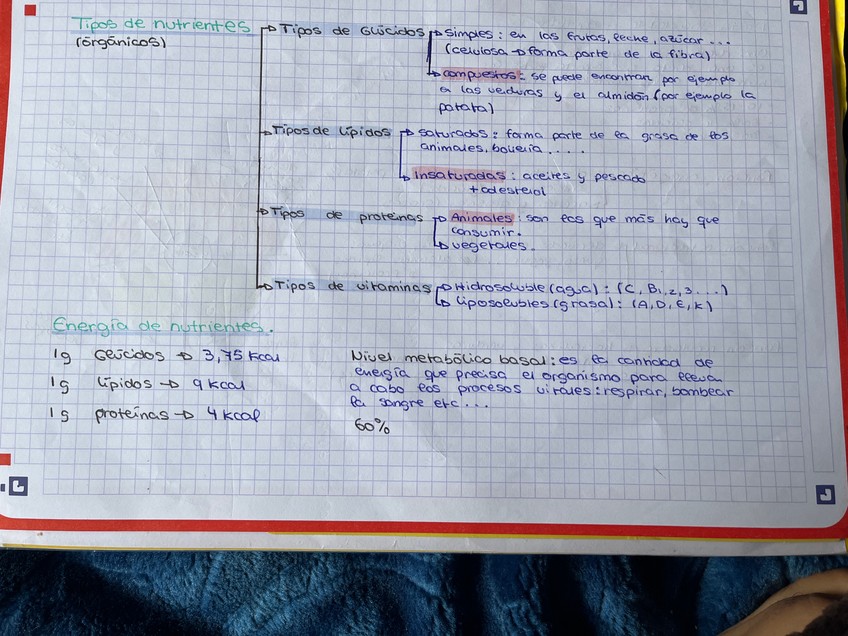 Tipos de nutrientes
(orgánicos)
Tipos de Glúcidos
simples: en las frutas, leche, azúcar...
(celulosa → forma parte de la fibra)
compuestos: se puede encontrar por ejemplo
en las verduras y el almidón (por ejemplo la
patata)
Tipos de lípidos
saturados: forma parte de la grasa de los
animales, bollería....
Insaturadas: aceites y pescado
+ colesterol
Tipos de proteínas
Animales: son los que más hay que
consumir.
vegetales.
Tipos de vitaminas
Hidrosoluble (agua): (C, B1,2,3...)
Liposolubles (grasa): (A, D, E, K)
Energía de nutrientes.
1g Glúcidos → 3,75 Kcal
1g lípidos → 9 Kcal
1g proteínas → 4 Kcal
Nivel metabólico basal: es la cantidad de
energía que precisa el organismo para llevar
a cabo los procesos vitales: respirar, bombear
la sangre etc...
60%